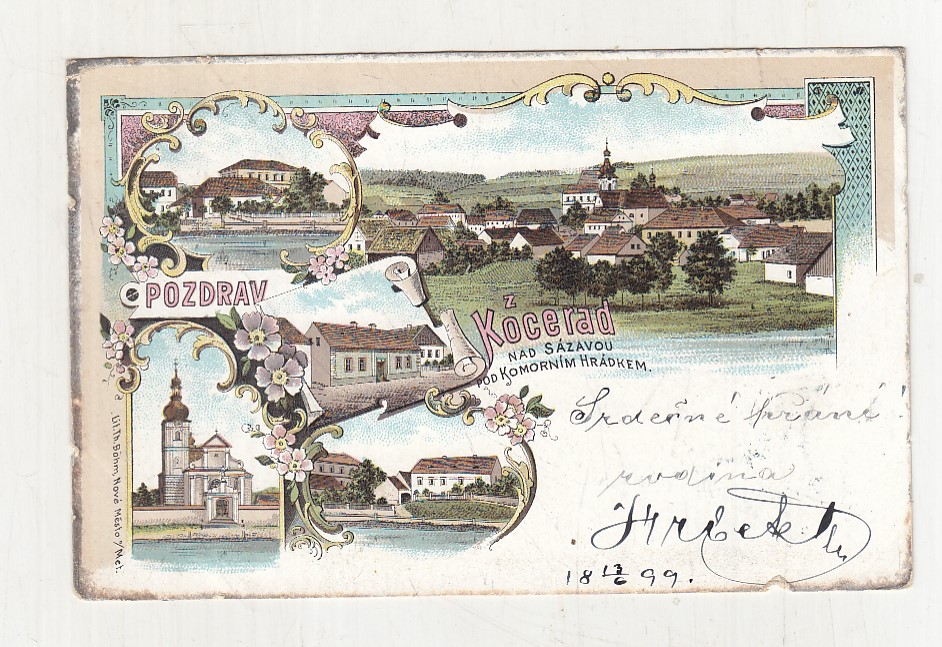 POZDRAV
z
Kocerad
NAD SÁZAVOU
POD KOMORNÍM HRÁDKEM.
Srdečné přání!
rodina
18 13/6 99.
Lit. Th. Böhm, Nové Město n/Met.